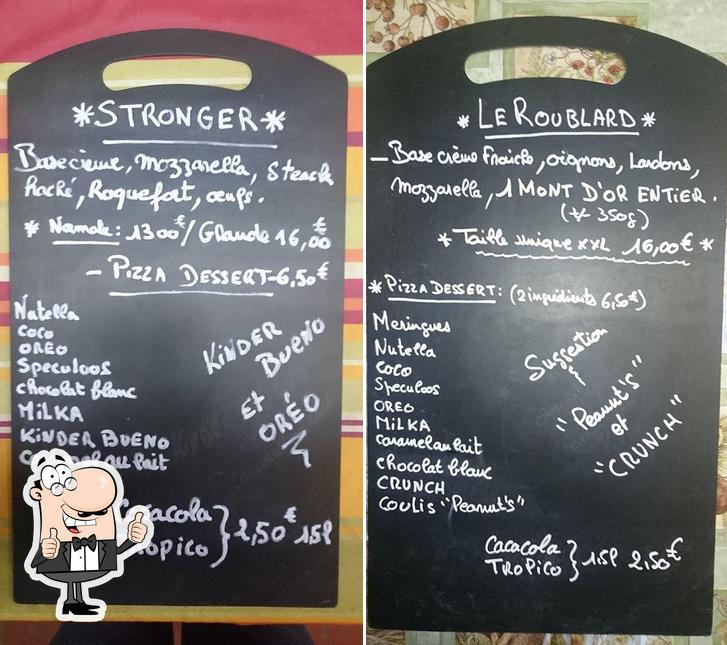 *STRONGER*
Base crème, Mozzarella, Steack
haché, Roquefort, œufs.
* Normale: 13 00€/ Grande 16,00€
- PIZZA DESSERT-6,50€
Nutella
Coco
OREO
Speculoos
chocolat blanc
MILKA
KINDER BUENO
Caramel au lait
KINDER
BUENO
ET
ORÉO
Cacacola
Tropico } 2,50€ 1,5l
* LE ROUBLARD *
- Base crème Fraîche, oignons, Lardons,
Mozzarella, 1 MONT D'OR ENTIER.
(+/- 350g)
* Taille unique XXL 16,00€ *
* PIZZA DESSERT: (2 ingrédients 6,50€)
Meringues
Nutella
Coco
Speculoos
OREO
MILKA
Caramel au lait
chocolat blanc
CRUNCH
COULIS "Peanut's"
Suggestion
"Peanut's"
et
"CRUNCH"
Cacacola
TROPICO } 1,5l 2,50€